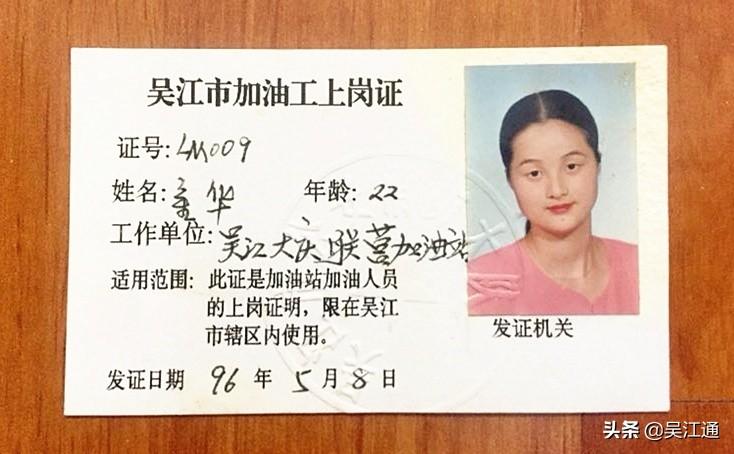 吴江市加油工上岗证
证号: LM009
姓名: 金华 年龄: 22
工作单位: 吴江大庆联营加油站
适用范围: 此证是加油站加油人员
的上岗证明，限在吴江
市辖区内使用。
发证机关
发证日期 96 年 5 月 8 日
头条 @吴江通